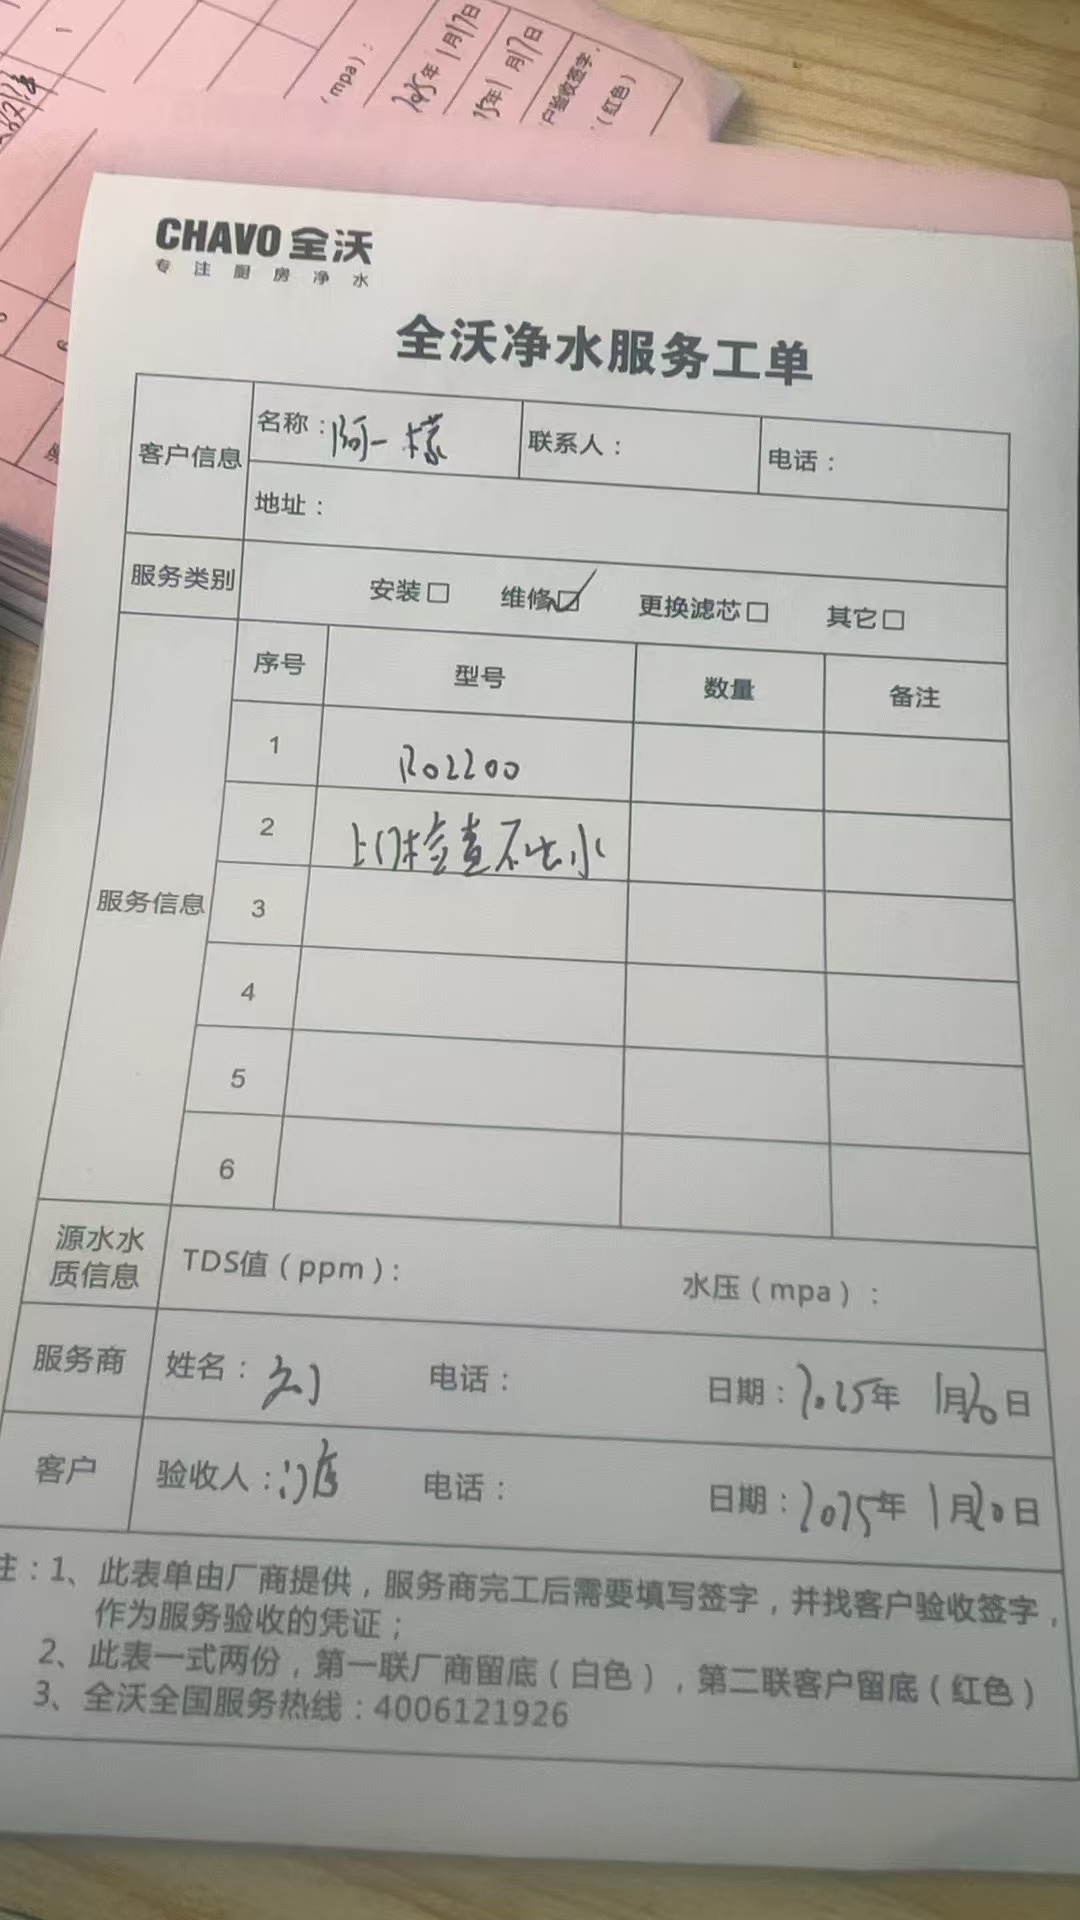 (mpa):
2025年1月17日
25年1月17日
户验收签字,
(红色)
CHAVO 全沃
专注厨房净水
全沃净水服务工单
客户信息 名称:阿一檬 联系人: 电话:
地址:
服务类别 安装□ 维修☑ 更换滤芯□ 其它□
服务信息 序号 型号 数量 备注
1 RO2200
2 上门检查不出水
3
4
5
6
源水水质信息 TDS值(ppm): 水压(mpa):
服务商 姓名:刘 电话: 日期:2025年1月20日
客户 验收人: 电话: 日期:2025年1月20日
注:1、此表单由厂商提供,服务商完工后需要填写签字,并找客户验收签字,
作为服务验收的凭证;
2、此表一式两份,第一联厂商留底(白色),第二联客户留底(红色)
3、全沃全国服务热线:4006121926